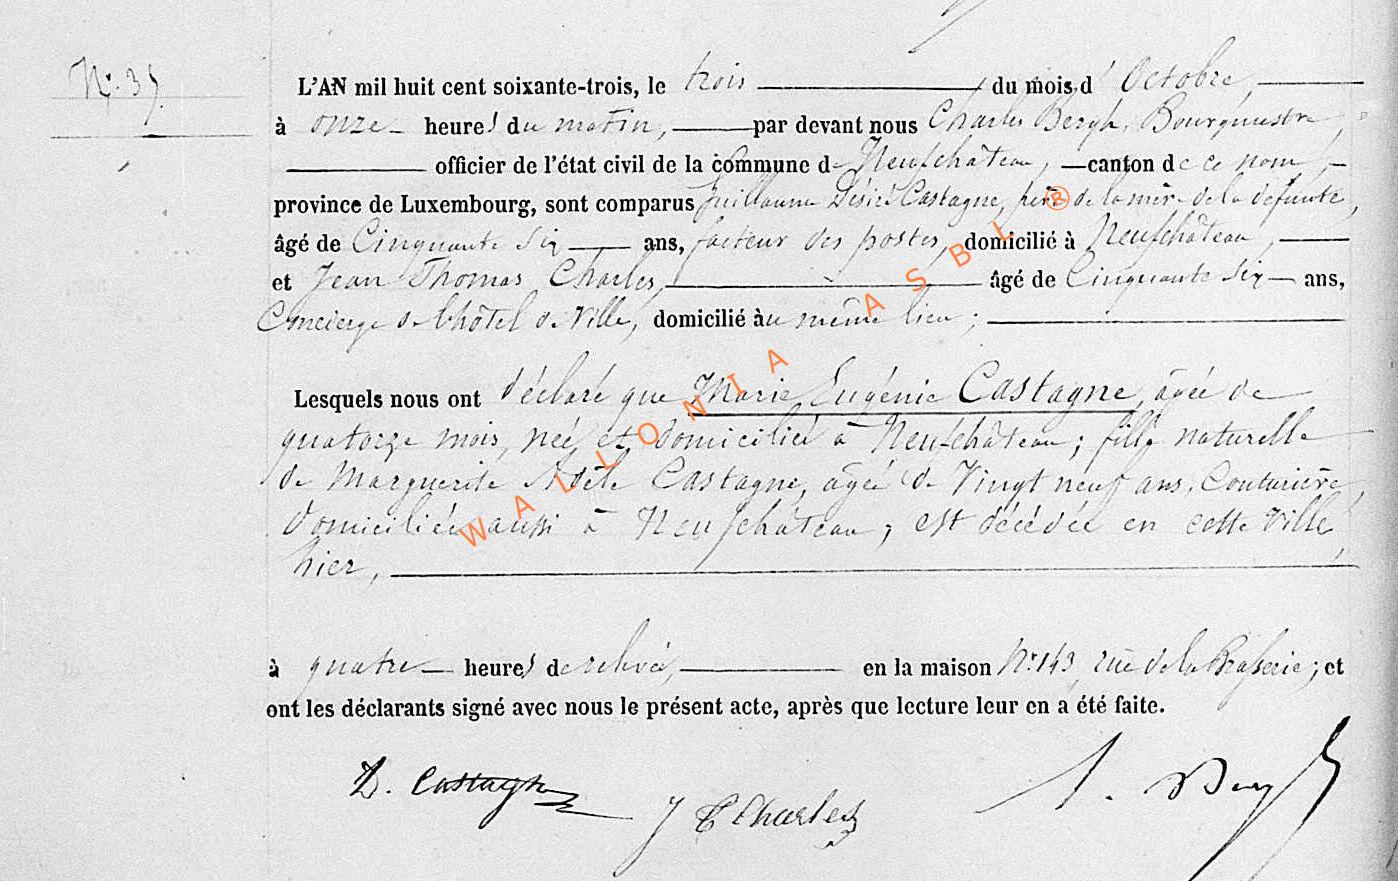 N° 39.
L'AN mil huit cent soixante-trois, le trois du mois d'Octobre,
à onze heures du matin, par devant nous Charles Bergh, Bourgmestre,
officier de l'état civil de la commune de Neufchâteau, canton de ce nom,
province de Luxembourg, sont comparus Guillaume Désiré Castagne, père de la mère de la défunte,
âgé de Cinquante Six ans, facteur des postes, domicilié à Neufchâteau,
et Jean Thomas Charles, âgé de Cinquante Six ans,
Concierge de l'hôtel de Ville, domicilié au même lieu ;
Lesquels nous ont déclaré que Marie Eugénie Castagne, âgée de
quatorze mois, née et domiciliée à Neufchâteau ; fille naturelle
de Marguerite Adèle Castagne, âgée de Vingt neuf ans, Couturière,
domiciliée aussi à Neufchâteau ; est décédée en cette Ville,
hier,
à quatre heures de relevée, en la maison N° 143, rue de la Brasserie ; et
ont les déclarants signé avec nous le présent acte, après que lecture leur en a été faite.
D. Castagne J T Charles
WALLONIA ASBL ®